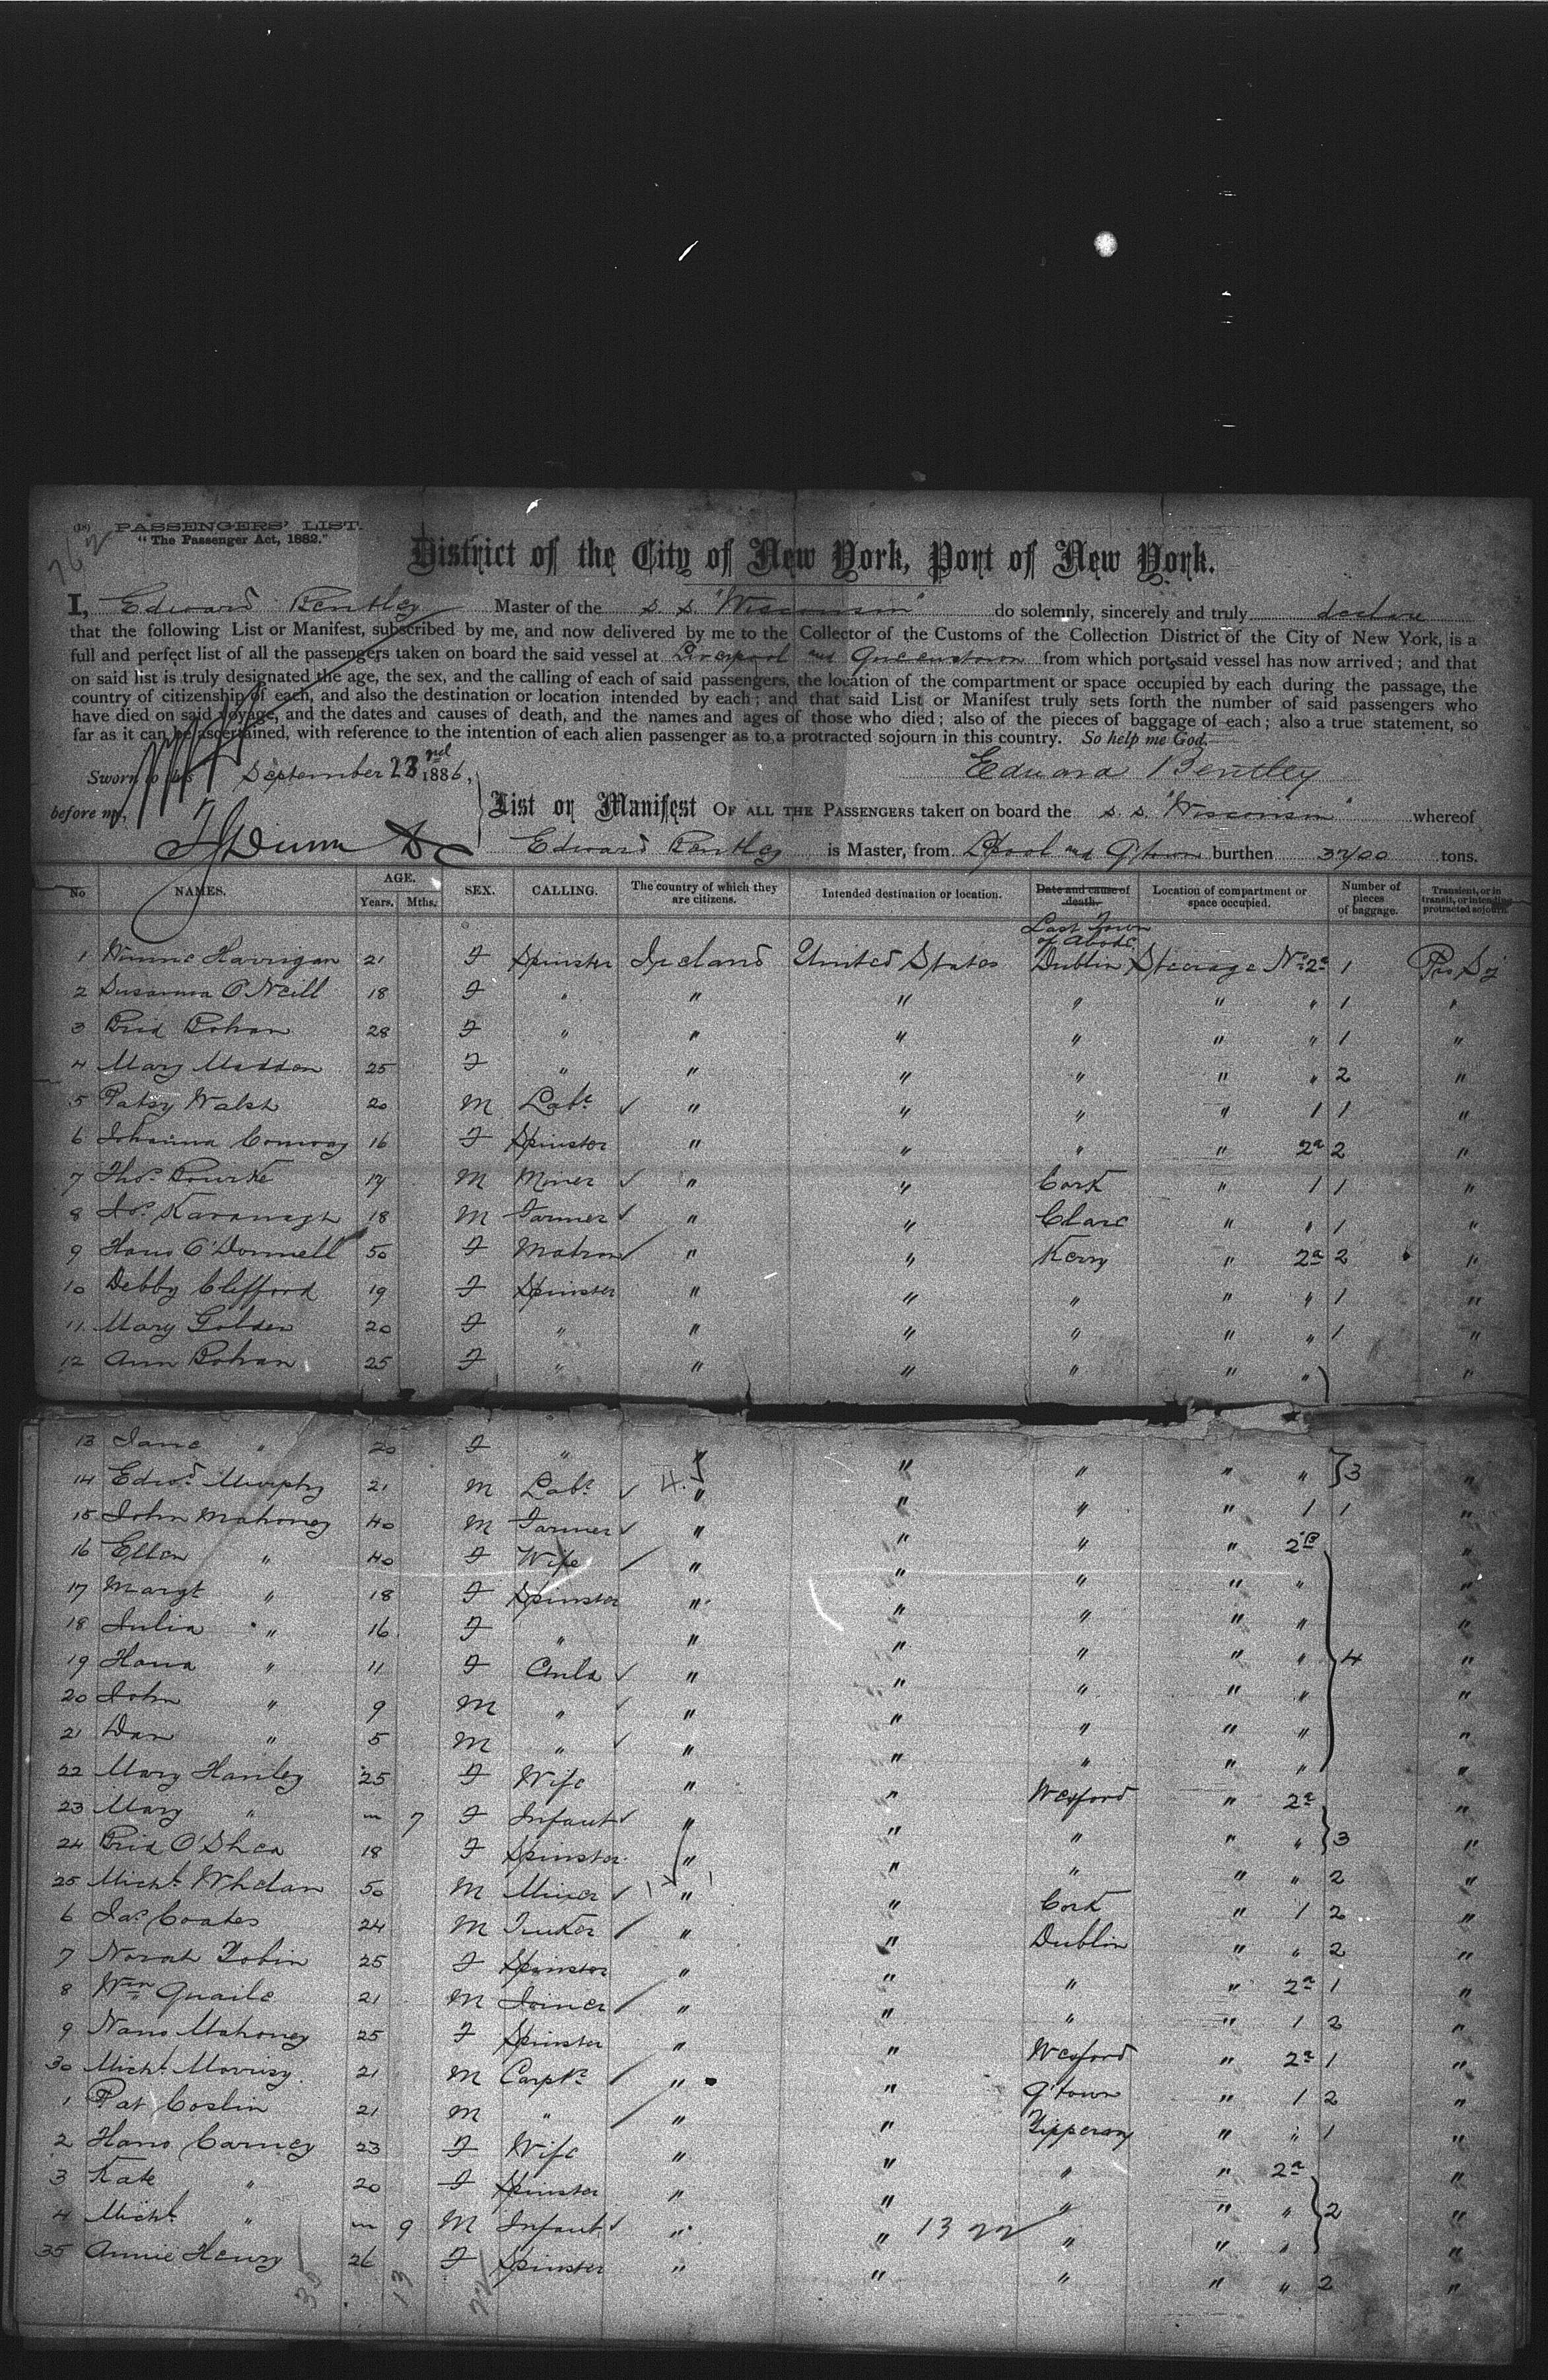 (18) PASSENGERS' LIST.
"The Passenger Act, 1882."
District of the City of New York, Port of New York.
I, Edward Bentley Master of the S. S. "Wisconsin" do solemnly, sincerely and truly declare
that the following List or Manifest, subscribed by me, and now delivered by me to the Collector of the Customs of the Collection District of the City of New York, is a
full and perfect list of all the passengers taken on board the said vessel at Liverpool and Queenstown from which ports said vessel has now arrived; and that
on said list is truly designated the age, the sex, and the calling of each of said passengers, the location of the compartment or space occupied by each during the passage, the
country of citizenship of each, and also the destination or location intended by each; and that said List or Manifest truly sets forth the number of said passengers who
have died on said voyage, and the dates and causes of death, and the names and ages of those who died; also of the pieces of baggage of each; also a true statement, so
far as it can be ascertained, with reference to the intention of each alien passenger as to a protracted sojourn in this country. So help me God.
Sworn to this September 23rd 1886, Edward Bentley
before me,
List or Manifest OF ALL THE PASSENGERS taken on board the S. S. "Wisconsin" whereof
Edward Bentley is Master, from L'pool and Q'town burthen 3700 tons.
No NAMES. AGE. Years. Mths. SEX. CALLING. The country of which they are citizens. Intended destination or location. Date and cause of death. Location of compartment or space occupied. Number of pieces of baggage. Transient, or in transit, or intending protracted sojourn.
Last Town of Abode
1 Winnie Harrigan 21 F Spinster Ireland United States Dublin Steerage No 2a 1 Pro Soj
2 Susanna O'Neill 18 F " " " " " " 1 "
3 Brid Bohan 28 F " " " " " " 1 "
4 Mary Madden 25 F " " " " " " 2 "
5 Patsy Walsh 20 M Labr " " " " 1 1 "
6 Johanna Conway 16 F Spinster " " " " 2a 2 "
7 Thos. Bourke 17 M Miner " " Cork " 1 1 "
8 Jos. Kavanagh 18 M Farmer " " Clare " " 1 "
9 Hano O'Donnell 50 F Matron " " Kerry " 2a 2 "
10 Debby Clifford 19 F Spinster " " " " " 1 "
11 Mary Golden 20 F " " " " " " 1 "
12 Ann Bohan 25 F " " " " " " "
13 Jane " 20 F " " " " " " 3 "
14 Edwd. Murphy 21 M Labr " " " " 1 1 "
15 John Mahoney 40 M Farmer " " " " 2B "
16 Ellen " 40 F Wife " " " " " "
17 Margt " 18 F Spinster " " " " " "
18 Julia " 16 F " " " " " " "
19 Hana " 11 F Child " " " " " 4 "
20 John " 9 M " " " " " " "
21 Dan " 5 M " " " " " " "
22 Mary Hanley 25 F Wife " " Wexford " 2a "
23 Mary " 7 F Infant " " " " " 3 "
24 Brid O'Shea 18 F Spinster " " " " " 2 "
25 Michl. Whelan 50 M Miner " " Cork " 1 2 "
6 Jas. Coates 24 M " " Dublin " " 2 "
7 Norah Tobin 25 F Spinster " " " " 2a 1 "
8 Wm Quaile 21 M Joiner " " " " 1 2 "
9 Nano Mahoney 25 F Spinster " " Wexford " 2a 1 "
30 Michl. Morrisy 21 M Carpr. " " Q'town " 1 2 "
1 Pat Coslin 21 M " " " Tipperary " " 1 "
2 Hano Carney 23 F Wife " " " " 2a "
3 Kate " 20 F Spinster " " " " " 2 "
4 Michl. " 9 M Infant " " " " " "
35 Annie Henry 26 F Spinster " " " " " 2 "
13 22
35 13 22